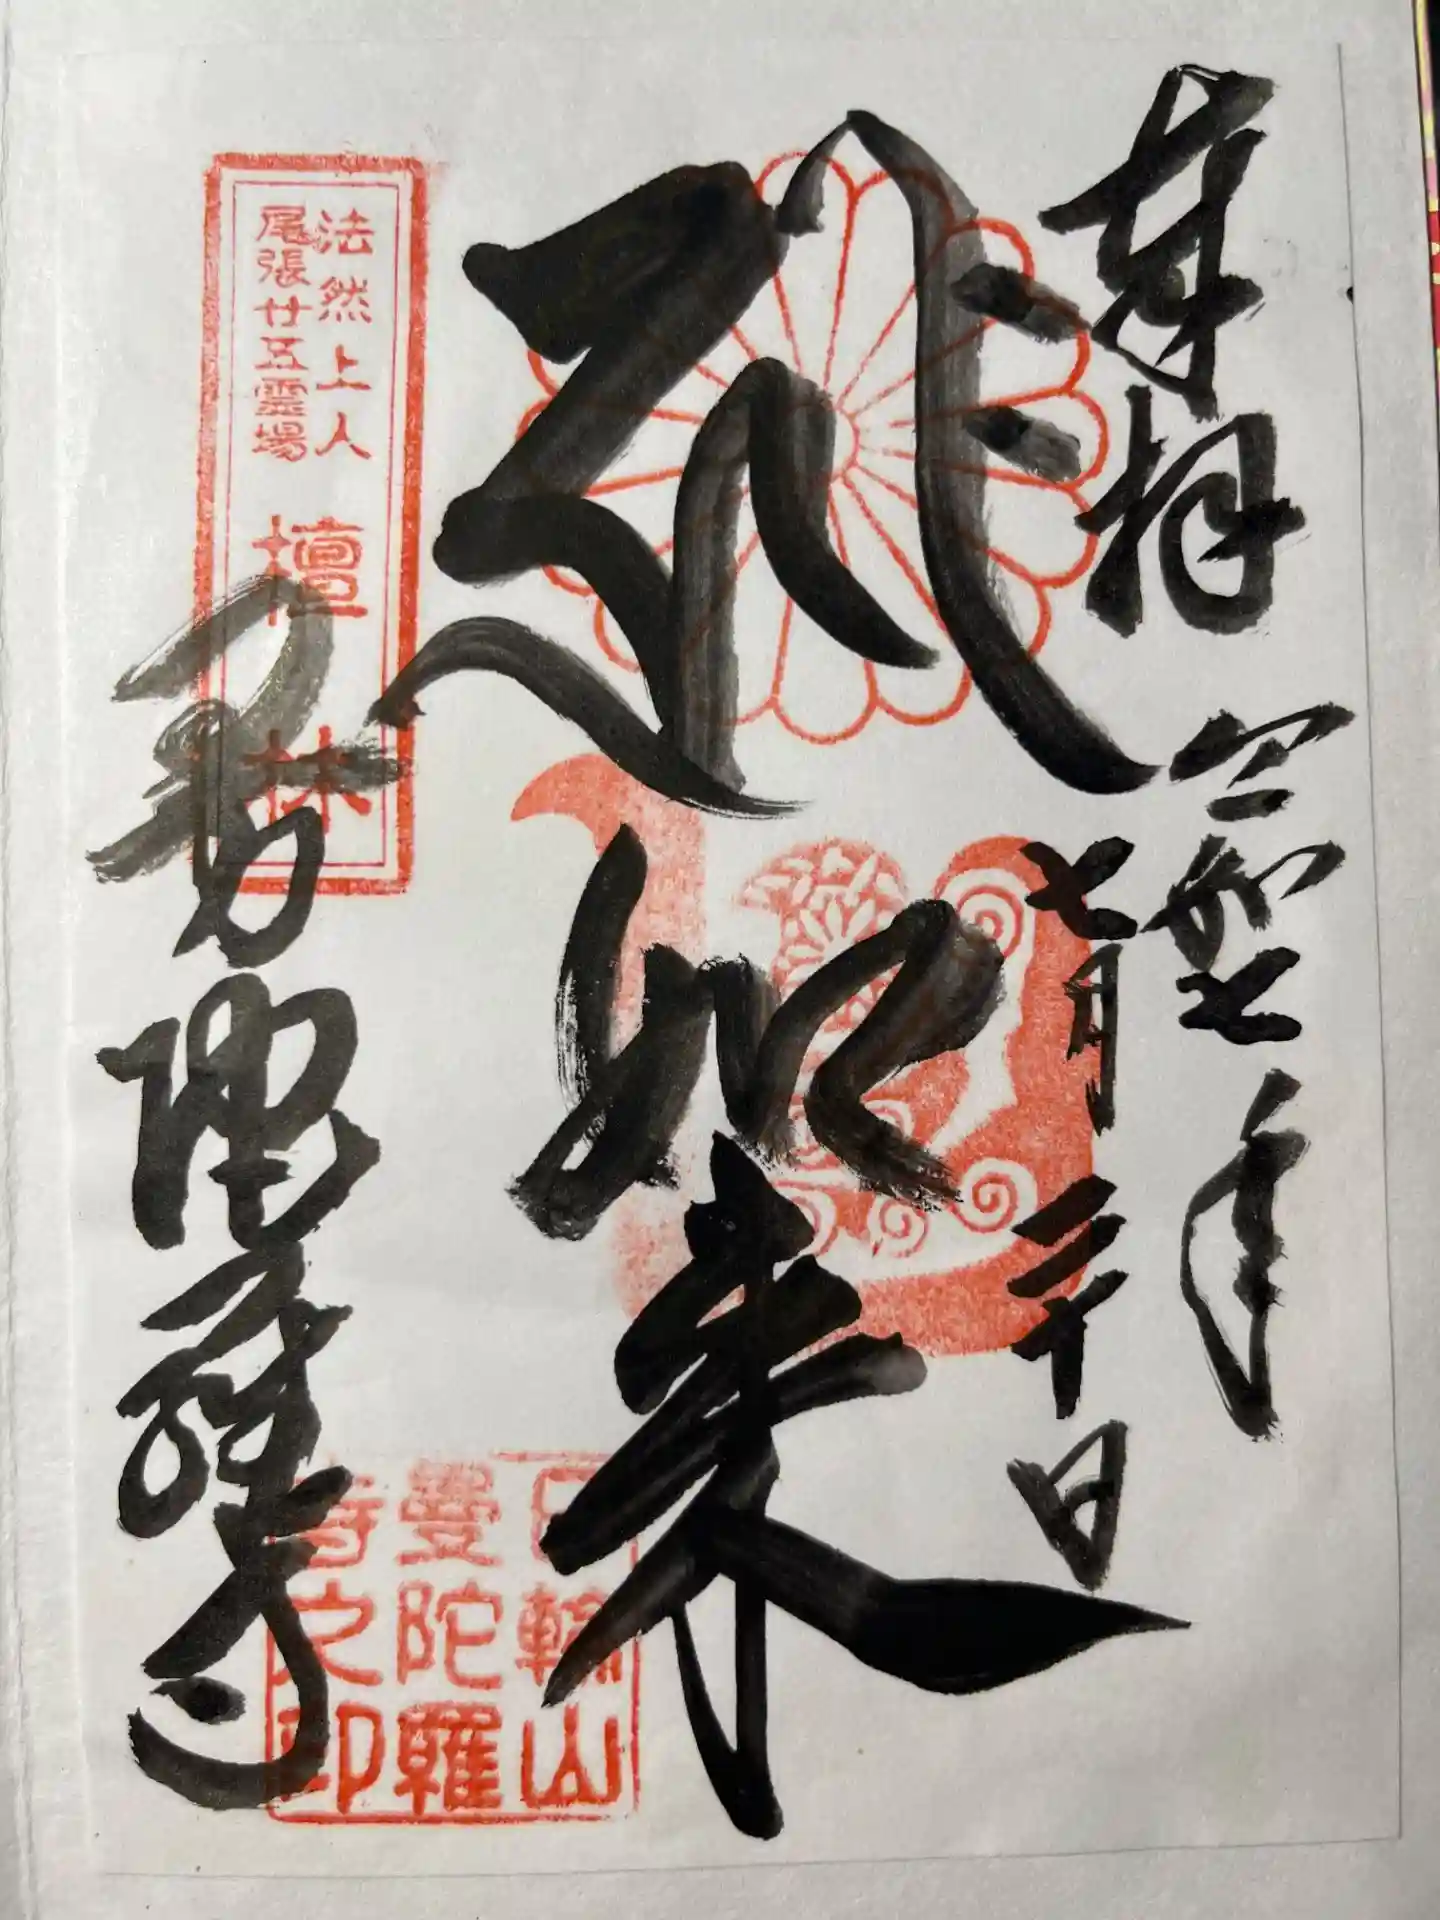 奉拝 令和七年
七月二十日
如来
曼陀羅寺
法然上人
尾張廿五霊場
檀林
日輪山
曼陀羅
寺之印